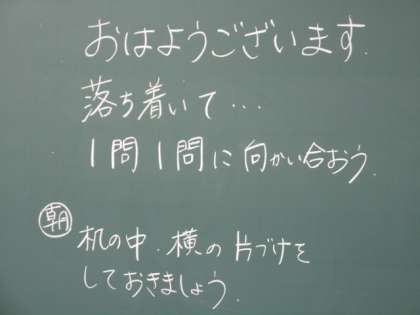 おはようございます.
落ち着いて・・・
1問1問に向かい合おう.
朝 机の中.横の片づけを
しておきましょう.